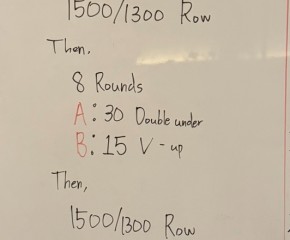 1500/1300 Row
Then,
8 Rounds
A: 30 Double under
B: 15 V-up
Then,
1500/1300 Row